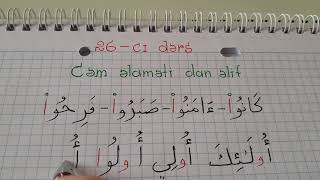 26-cı dərs
Cəm əlaməti olan əlif
كَانُوا - ءَامَنُوا - صَبَرُوا - فَرِحُوا
أُولَٰئِكَ أُولِي أُولُوا أُ